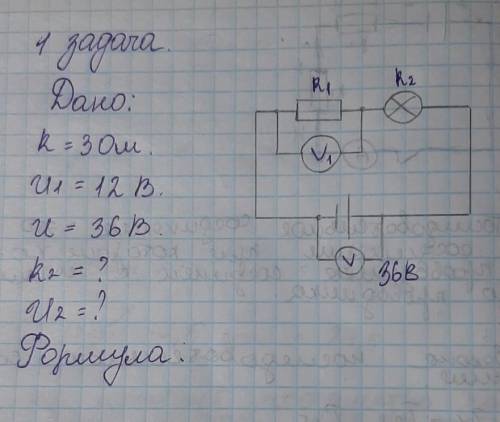 1 задача.
Дано:
R = 3 Ом.
U1 = 12 В.
U = 36 В.
R2 = ?
U2 = ?
Формула:
R1
R2
V1
V
36В